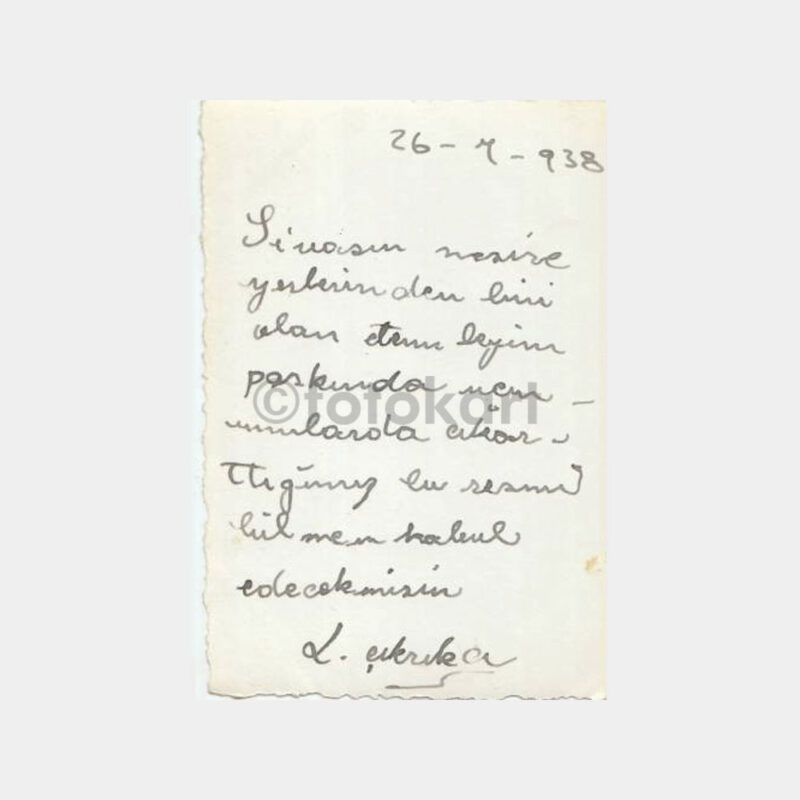 26 - 7 - 938
Sivasın mesire
yerlerinden biri
olan etem beyin
parkında
©fotokart
çıkar-
ttığımız bu resmi
bilmem kabul
edecekmisin
L. çıkrıkçı